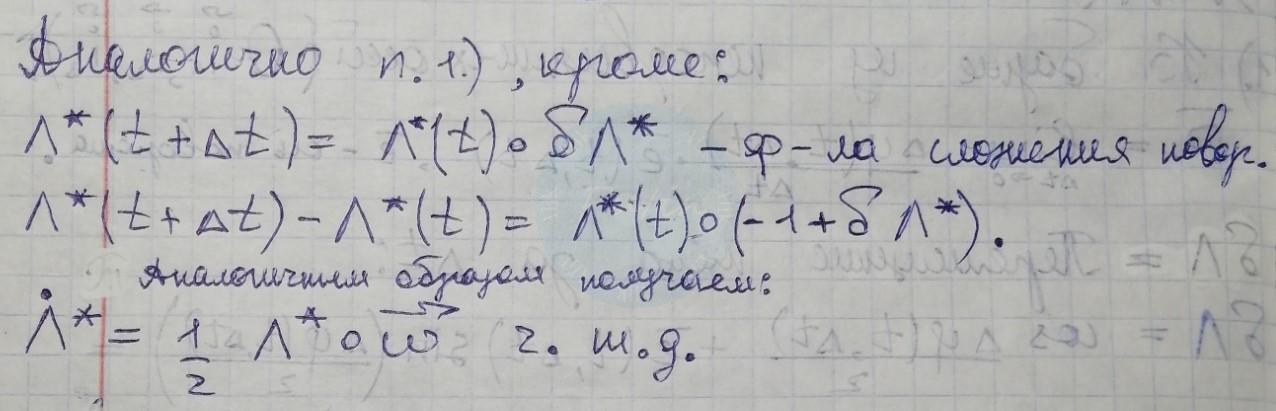 Аналогично п. 1.), кроме:
Λ*(t + Δt) = Λ*(t) ∘ δΛ* - ф-ла сложения повор.
Λ*(t + Δt) - Λ*(t) = Λ*(t) ∘ (-1 + δΛ*).
Аналогичным образом получаем:
Λ̇* = 1/2 Λ* ∘ ω⃗ ч. т. д.